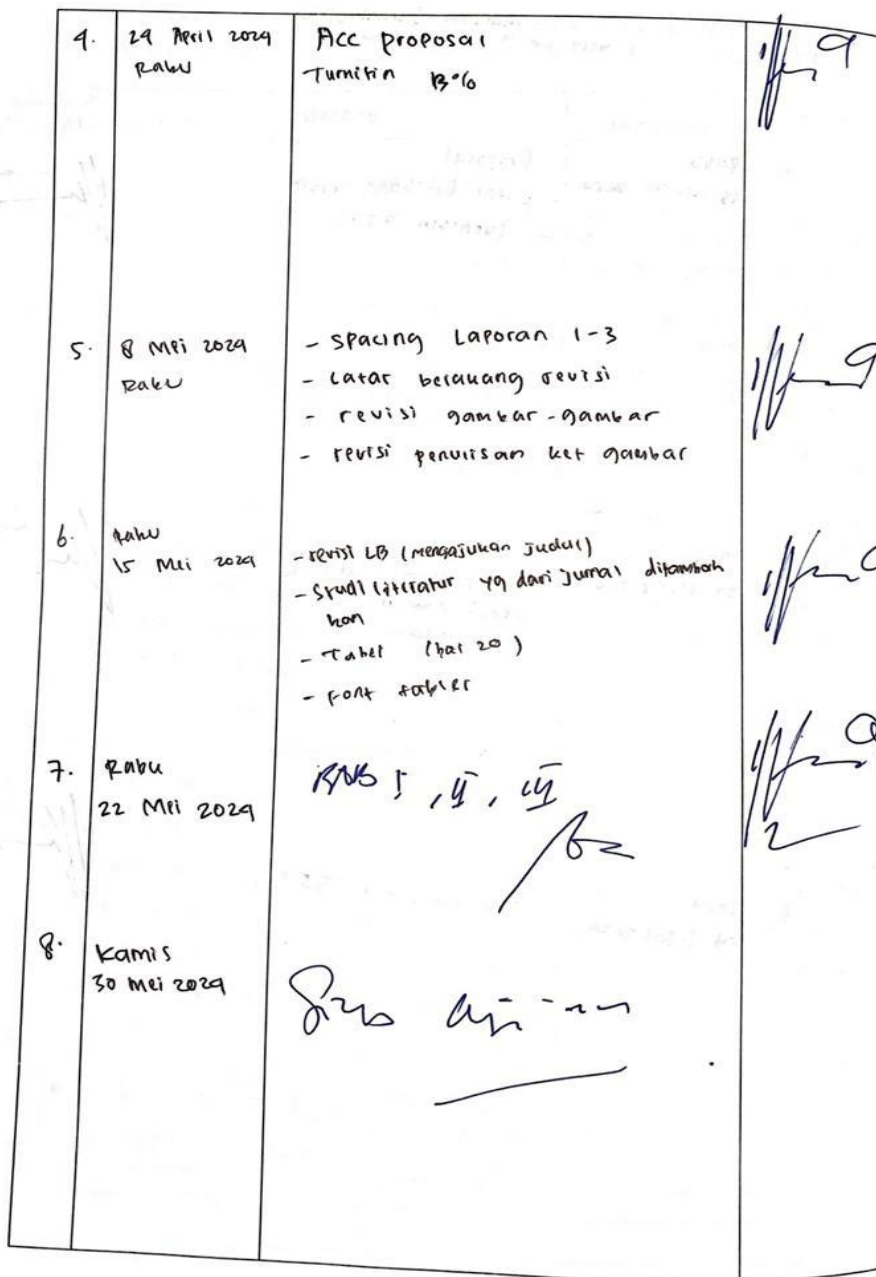 4. 24 April 2024 Acc proposal
Rabu Turnitin 13%
5. 8 Mei 2024 - Spacing Laporan 1-3
Rabu - Latar belakang revisi
- revisi gambar-gambar
- revisi penulisan ket gambar
6. Rabu
15 Mei 2024 - revisi LB (mengajukan judul)
- Studi literatur yg dari jurnal ditambah
kan
- Tabel (hal 20)
- Font
7. Rabu BAB I, II, III
22 Mei 2024
8. Kamis
30 Mei 2024